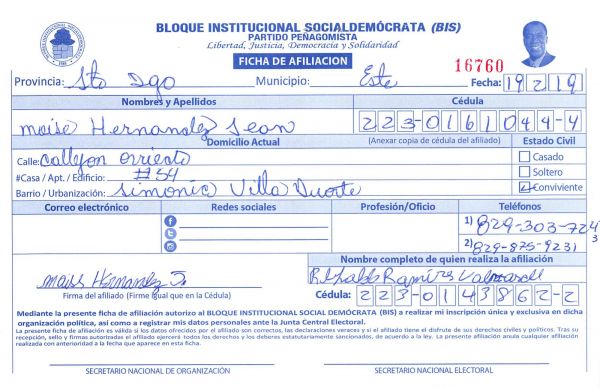 BLOQUE INSTITUCIONAL SOCIALDEMÓCRATA (BIS)
PARTIDO PEÑAGOMISTA
Libertad, Justicia, Democracia y Solidaridad
FICHA DE AFILIACION
16760
Provincia: Sto Dgo Municipio: Este Fecha: 19 2 19
Nombres y Apellidos Cédula
moise Hernandez Jean 223-0161044-4
Domicilio Actual (Anexar copia de cédula del afiliado) Estado Civil
Calle: Callejon orriente Casado
#Casa / Apt. / Edificio: #54 Soltero
Barrio / Urbanización: Simonic Villa Duarte Conviviente
Correo electrónico Redes sociales Profesión/Oficio Teléfonos
1) 829-303-7243
2) 829-875-9231
Nombre completo de quien realiza la afiliación
Moiss Hernandez J. Ramirez
Firma del afiliado (Firme igual que en la Cédula) Cédula: 223-0143862-2
Mediante la presente ficha de afiliación autorizo al BLOQUE INSTITUCIONAL SOCIAL DEMÓCRATA (BIS) a realizar mi inscripción única y exclusiva en dicha
organización política, así como a registrar mis datos personales ante la Junta Central Electoral.
La presente ficha de afiliación es válida si los datos ofrecidos por el afiliado son correctos, las declaraciones veraces y si el afiliado tiene el disfrute de sus derechos civiles y políticos. Tras su
recepción, sello y firmas autorizadas el afiliado ejercerá todos los derechos y los deberes estatutariamente sancionados, de acuerdo a la ley. La presente afiliación anula cualquier afiliación
realizada con anterioridad a la fecha que aparece en esta ficha.
SECRETARIO NACIONAL DE ORGANIZACIÓN SECRETARIO NACIONAL ELECTORAL